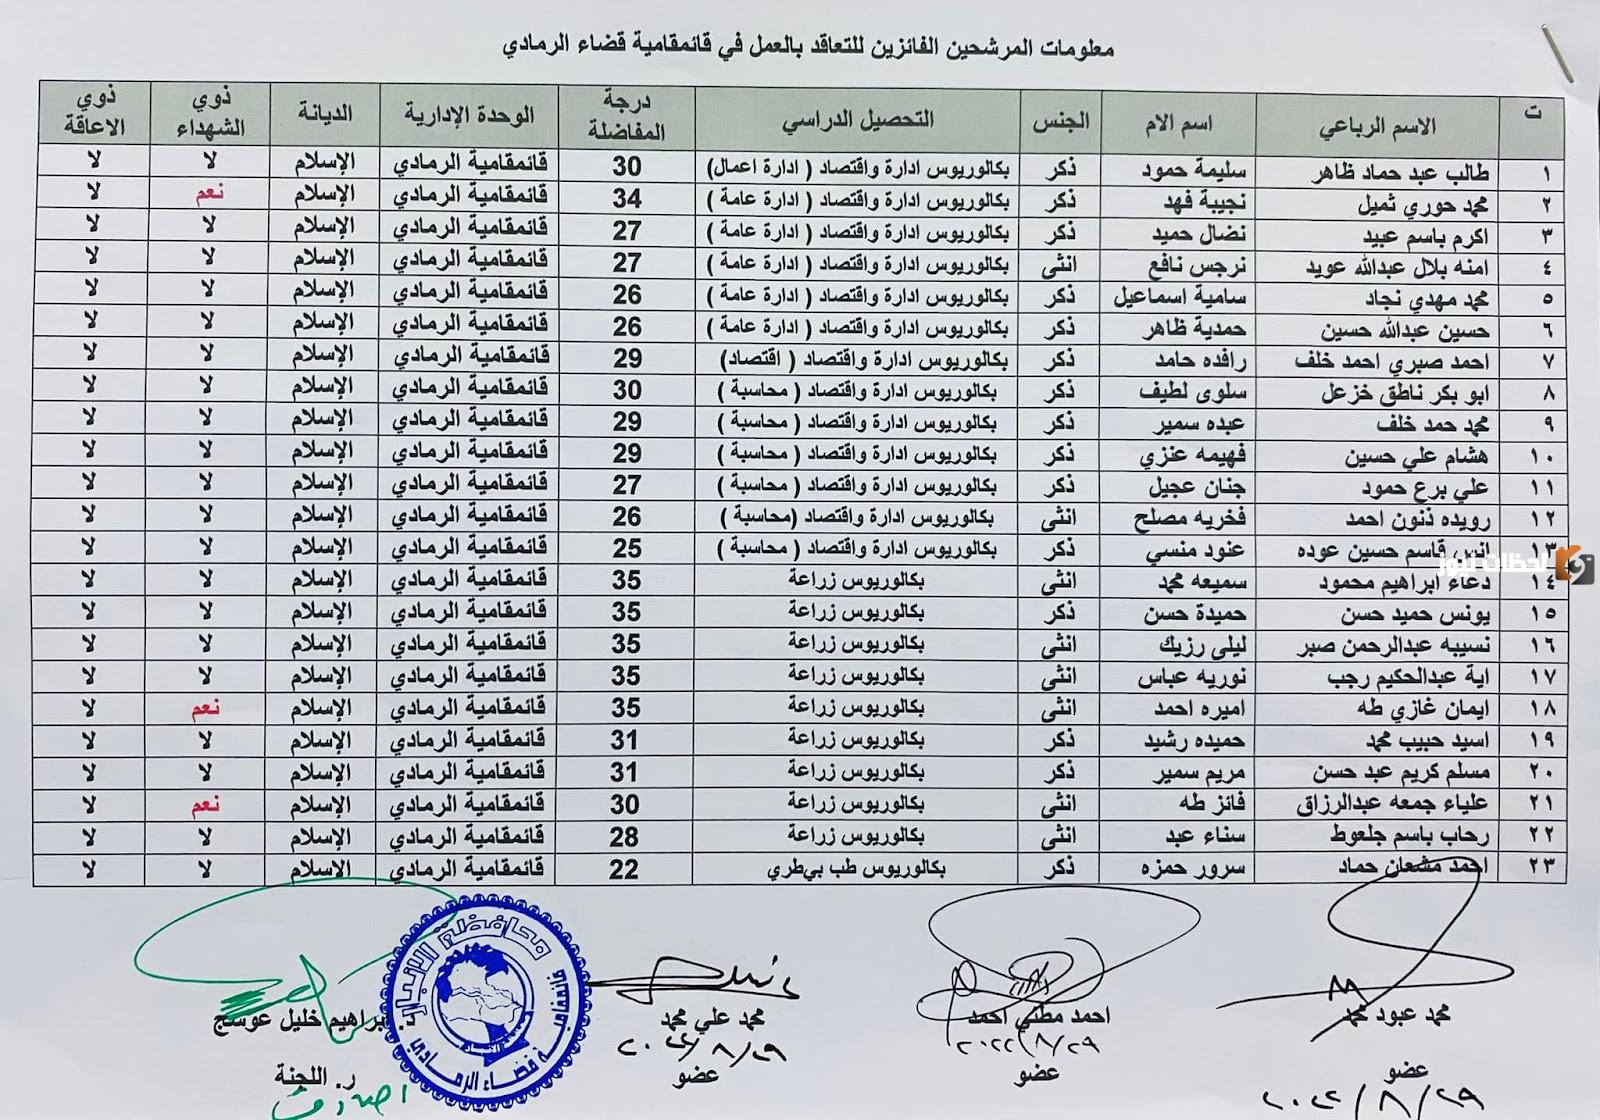 معلومات المرشحين الفائزين للتعاقد بالعمل في قائممقامية قضاء الرمادي
ت الاسم الرباعي اسم الام الجنس التحصيل الدراسي درجة المفاضلة الوحدة الإدارية الديانة ذوي الشهداء ذوي الاعاقة
١ طالب عبد حماد ظاهر سليمة حمود ذكر بكالوريوس ادارة واقتصاد ( ادارة اعمال) 30 قائمقامية الرمادي الإسلام لا لا
٢ محمد حوري ثميل نجيبة فهد ذكر بكالوريوس ادارة واقتصاد ( ادارة عامة ) 34 قائمقامية الرمادي الإسلام نعم لا
٣ اكرم باسم عبيد نضال حميد ذكر بكالوريوس ادارة واقتصاد ( ادارة عامة ) 27 قائمقامية الرمادي الإسلام لا لا
٤ امنه بلال عبدالله عويد نرجس نافع انثى بكالوريوس ادارة واقتصاد ( ادارة عامة ) 27 قائمقامية الرمادي الإسلام لا لا
٥ محمد مهدي نجاد سامية اسماعيل ذكر بكالوريوس ادارة واقتصاد ( ادارة عامة ) 26 قائمقامية الرمادي الإسلام لا لا
٦ حسين عبدالله حسين حمدية ظاهر ذكر بكالوريوس ادارة واقتصاد ( ادارة عامة ) 26 قائمقامية الرمادي الإسلام لا لا
٧ احمد صبري احمد خلف رافده حامد ذكر بكالوريوس ادارة واقتصاد ( اقتصاد) 29 قائمقامية الرمادي الإسلام لا لا
٨ ابو بكر ناطق خزعل سلوى لطيف ذكر بكالوريوس ادارة واقتصاد ( محاسبة ) 30 قائمقامية الرمادي الإسلام لا لا
٩ محمد حمد خلف عبده سمير ذكر بكالوريوس ادارة واقتصاد ( محاسبة ) 29 قائمقامية الرمادي الإسلام لا لا
١٠ هشام علي حسين فهيمه عنزي ذكر بكالوريوس ادارة واقتصاد ( محاسبة ) 29 قائمقامية الرمادي الإسلام لا لا
١١ علي برع حمود جنان عجيل ذكر بكالوريوس ادارة واقتصاد ( محاسبة ) 27 قائمقامية الرمادي الإسلام لا لا
١٢ رويده ذنون احمد فخريه مصلح انثى بكالوريوس ادارة واقتصاد (محاسبة ) 26 قائمقامية الرمادي الإسلام لا لا
١٣ انس قاسم حسين عوده عنود منسي ذكر بكالوريوس ادارة واقتصاد ( محاسبة ) 25 قائمقامية الرمادي الإسلام لا لا
لحظات نيوز
١٤ دعاء ابراهيم محمود سميعه محمد انثى بكالوريوس زراعة 35 قائمقامية الرمادي الإسلام لا لا
١٥ يونس حميد حسن حميدة حسن ذكر بكالوريوس زراعة 35 قائمقامية الرمادي الإسلام لا لا
١٦ نسيبه عبدالرحمن صبر ليلى رزيك انثى بكالوريوس زراعة 35 قائمقامية الرمادي الإسلام لا لا
١٧ اية عبدالحكيم رجب نوريه عباس انثى بكالوريوس زراعة 35 قائمقامية الرمادي الإسلام لا لا
١٨ ايمان غازي طه اميره احمد انثى بكالوريوس زراعة 35 قائمقامية الرمادي الإسلام نعم لا
١٩ اسيد حبيب محمد حميده رشيد ذكر بكالوريوس زراعة 31 قائمقامية الرمادي الإسلام لا لا
٢٠ مسلم كريم عبد حسن مريم سمير ذكر بكالوريوس زراعة 31 قائمقامية الرمادي الإسلام لا لا
٢١ علياء جمعه عبدالرزاق فائز طه انثى بكالوريوس زراعة 30 قائمقامية الرمادي الإسلام نعم لا
٢٢ رحاب باسم جلعوط سناء عبد انثى بكالوريوس زراعة 28 قائمقامية الرمادي الإسلام لا لا
٢٣ احمد مشعان حماد سرور حمزه ذكر بكالوريوس طب بيطري 22 قائمقامية الرمادي الاسلام لا لا
محافظة الانبار
قائممقامية قضاء الرمادي
محمد عبود محمد احمد مطني احمد محمد علي محمد د. ابراهيم خليل عوسج
٢٠٢٢/٨/٢٩ ٢٠٢٢/٨/٢٩
عضو عضو عضو ر. اللجنة
٢٠٢٢/٨/٢٩